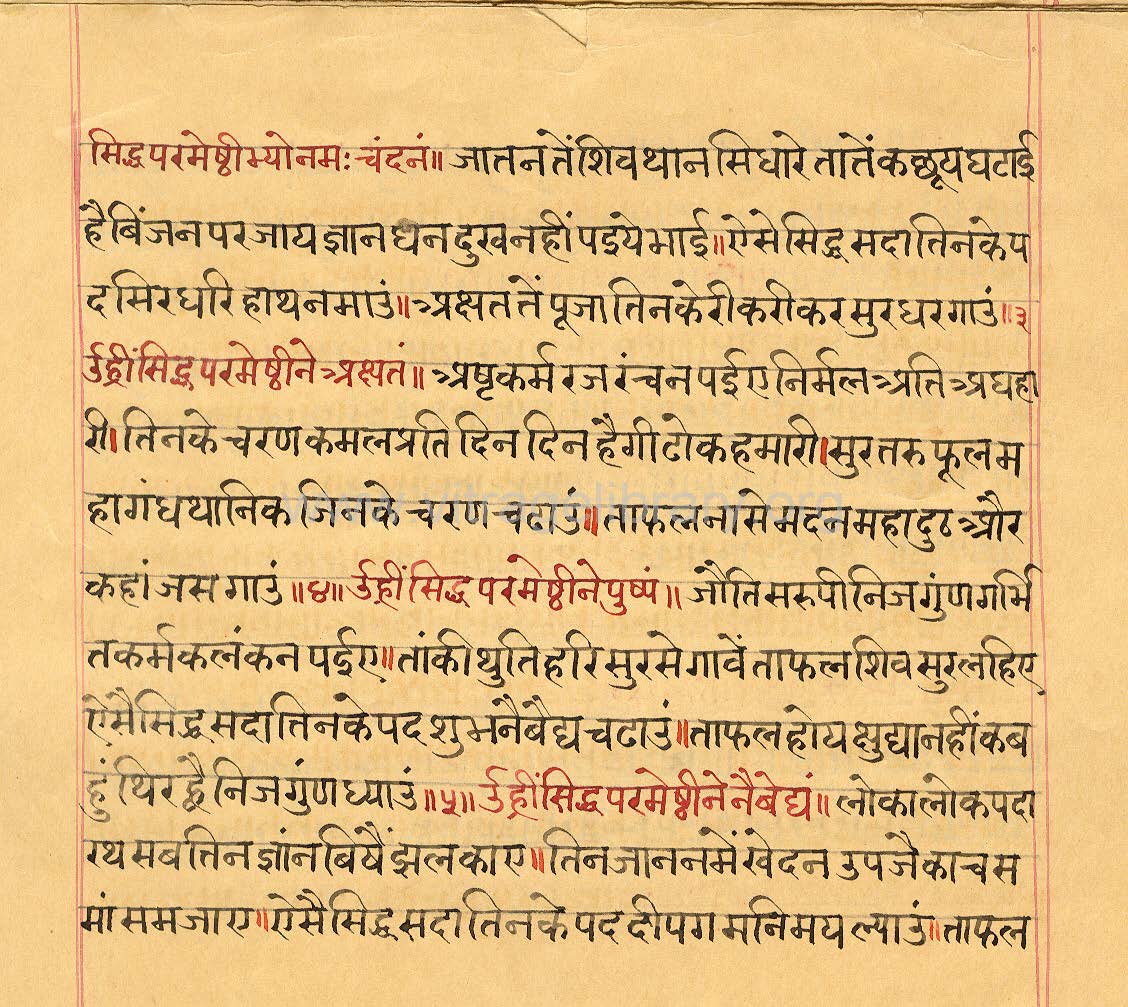 सिद्धपरमेष्ठीभ्योनमः चंदनं॥ जातनतेंशिवथानसिधारेतातेंकछूयघटाई
हैबिंजनपरजायज्ञानघनदुखनहींपइयेभाई॥ऐसेसिद्धसदातिनकेप
दसिरधरिहाथनमाउं॥अक्षततेंपूजातिनकेरीकरीकरसुरधरगाउं॥३
उंह्रींसिद्धपरमेष्ठीनेअक्षतं॥अष्टकर्मरजरंचनपईएनिर्मलअतिअघहा
री।तिनकेचरणकमलप्रतिदिनदिनहैगीढोकहमारी।सुरतरुफूलम
हागंधथानिकजिनकेचरणचढाउं॥ताफलनासेमदनमहादुठऔर
कहांजसगाउं॥४॥उंह्रींसिद्धपरमेष्ठीनेपुष्पं॥जोतिसरुपीनिजगुंणगर्भि
तकर्मकलंकनपईए॥तांकीथुतिहरिसुरसेगावेंताफलशिवसुरलहिए
ऐसैसिद्धसदातिनकेपदशुभनैबैद्यचढाउं॥ताफलहोयक्षुद्यानहींकब
हुंथिरह्वैनिजगुंणध्याउं॥५॥उंह्रींसिद्धपरमेष्ठीनेनैबेद्यं॥लोकालोकपदा
रथसबतिनज्ञांनबिषैंझलकाए॥तिनजाननमेंखेदनउपजैकाचस
मांसमजाए॥ऐसैसिद्धसदातिनकेपददीपगमनिमयल्याउं॥ताफल
www.vitragelibrary.org